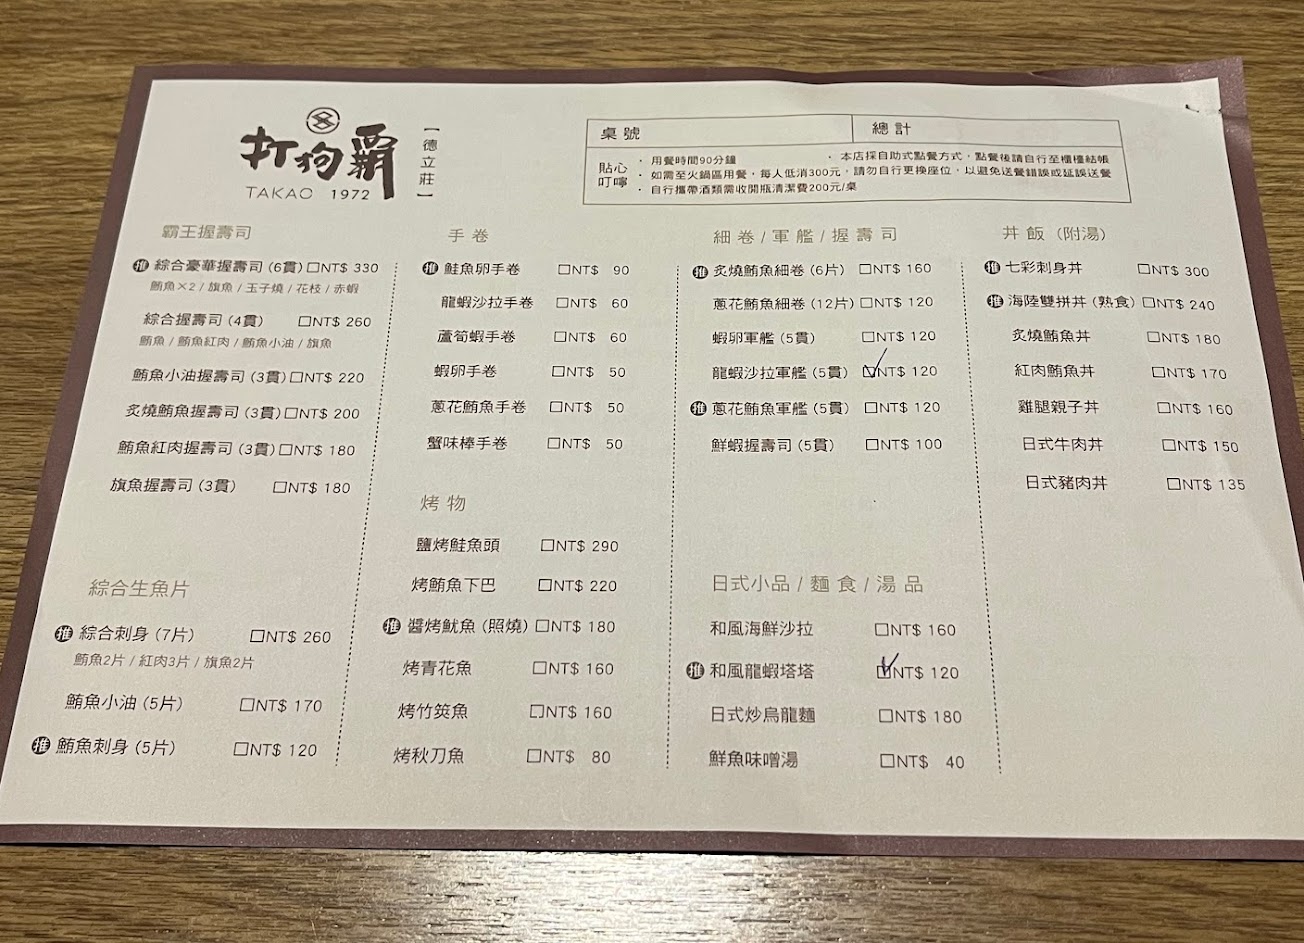 打狗霸
TAKAO 1972
【德立莊】
桌號
總計
貼心叮嚀
・用餐時間90分鐘
・本店採自助式點餐方式,點餐後請自行至櫃檯結帳
・如需至火鍋區用餐,每人低消300元,請勿自行更換座位,以避免送餐錯誤或延誤送餐
・自行攜帶酒類需收開瓶清潔費200元/桌
霸王握壽司
推 綜合豪華握壽司 (6貫) □NT$ 330
鮪魚×2 / 旗魚 / 玉子燒 / 花枝 / 赤蝦
綜合握壽司 (4貫) □NT$ 260
鮪魚 / 鮪魚紅肉 / 鮪魚小油 / 旗魚
鮪魚小油握壽司 (3貫) □NT$ 220
炙燒鮪魚握壽司 (3貫) □NT$ 200
鮪魚紅肉握壽司 (3貫) □NT$ 180
旗魚握壽司 (3貫) □NT$ 180
綜合生魚片
推 綜合刺身 (7片) □NT$ 260
鮪魚2片 / 紅肉3片 / 旗魚2片
鮪魚小油 (5片) □NT$ 170
推 鮪魚刺身 (5片) □NT$ 120
手卷
推 鮭魚卵手卷 □NT$ 90
龍蝦沙拉手卷 □NT$ 60
蘆筍蝦手卷 □NT$ 60
蝦卵手卷 □NT$ 50
蔥花鮪魚手卷 □NT$ 50
蟹味棒手卷 □NT$ 50
烤物
鹽烤鮭魚頭 □NT$ 290
烤鮪魚下巴 □NT$ 220
推 醬烤魷魚 (照燒) □NT$ 180
烤青花魚 □NT$ 160
烤竹筴魚 □NT$ 160
烤秋刀魚 □NT$ 80
細卷/軍艦/握壽司
推 炙燒鮪魚細卷 (6片) □NT$ 160
蔥花鮪魚細卷 (12片) □NT$ 120
蝦卵軍艦 (5貫) □NT$ 120
龍蝦沙拉軍艦 (5貫) ☑NT$ 120
推 蔥花鮪魚軍艦 (5貫) □NT$ 120
鮮蝦握壽司 (5貫) □NT$ 100
日式小品/麵食/湯品
和風海鮮沙拉 □NT$ 160
推 和風龍蝦塔塔 ☑NT$ 120
日式炒烏龍麵 □NT$ 180
鮮魚味噌湯 □NT$ 40
丼飯 (附湯)
推 七彩刺身丼 □NT$ 300
推 海陸雙拼丼 (熟食) □NT$ 240
炙燒鮪魚丼 □NT$ 180
紅肉鮪魚丼 □NT$ 170
雞腿親子丼 □NT$ 160
日式牛肉丼 □NT$ 150
日式豬肉丼 □NT$ 135